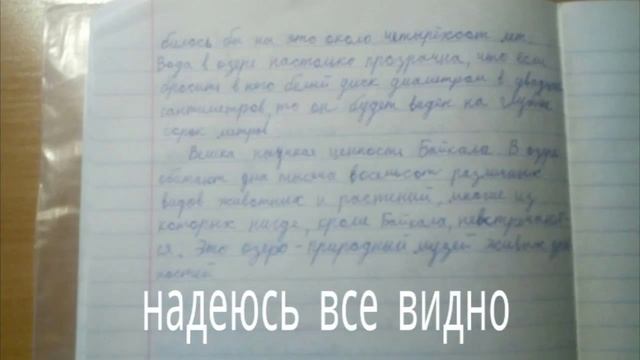 билось бы на это около четырёхсот лет.
Вода в озере настолько прозрачна, что если
бросить в него белый диск диаметром в двадцать
сантиметров, то он будет виден на глубине
сорок метров
Велика научная ценность Байкала. В озере
обитают две тысяча восемьсот различных
видов животных и растений, многие из
которых нигде, кроме Байкала, невстречают
ся. Это озеро - природный музей живых
надеюсь все видно